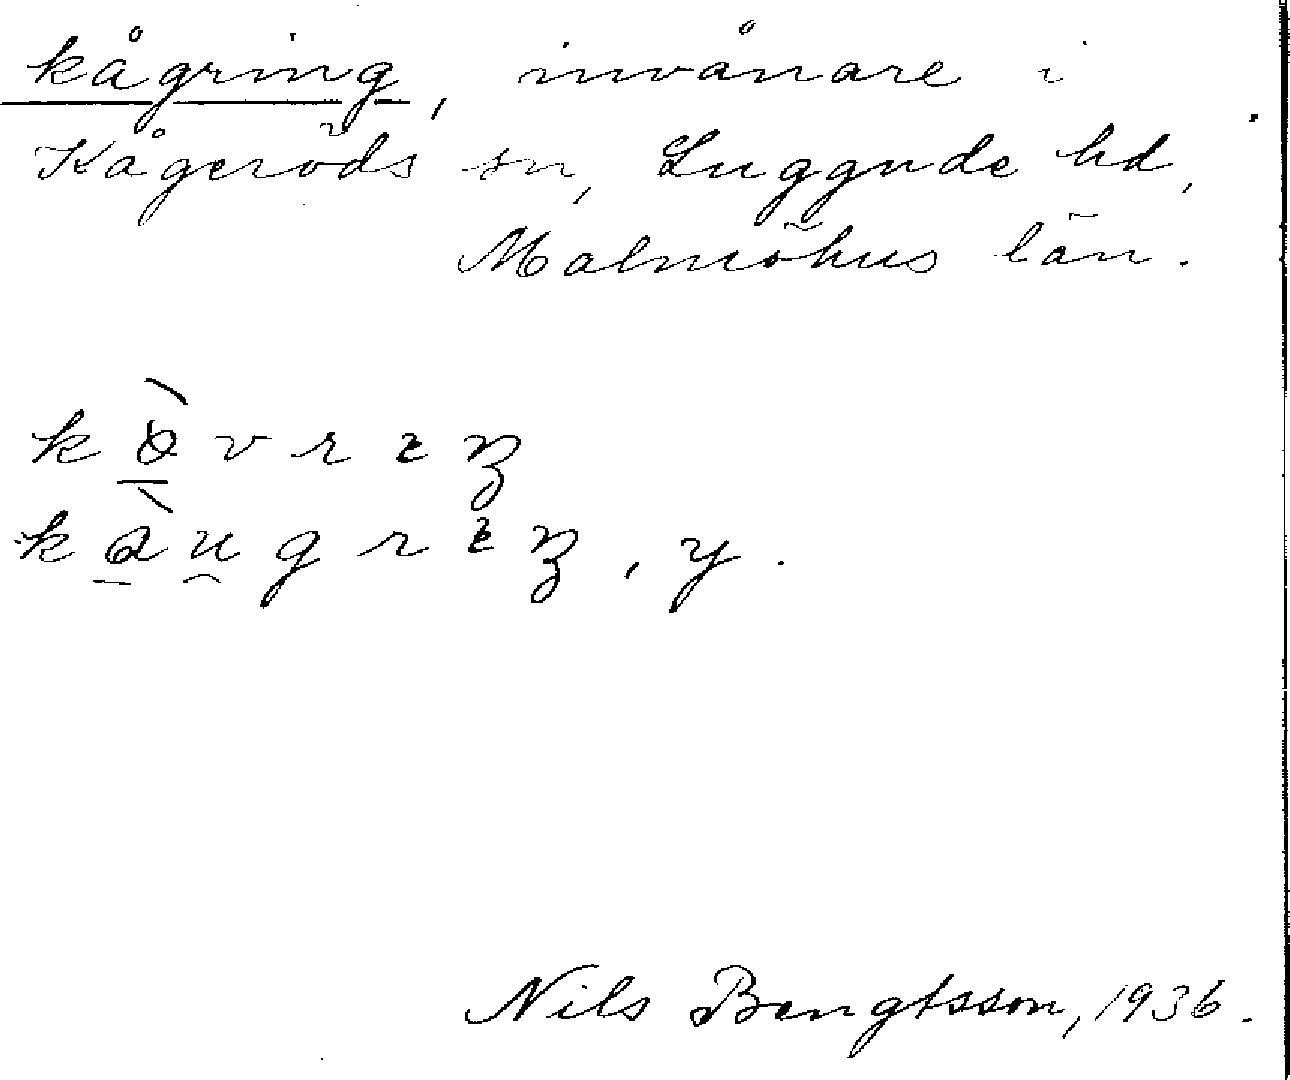 kågring, invånare i
Kågeröds sn, Luggude hd,
Malmöhus län.
Nils Bengtsson, 1936.